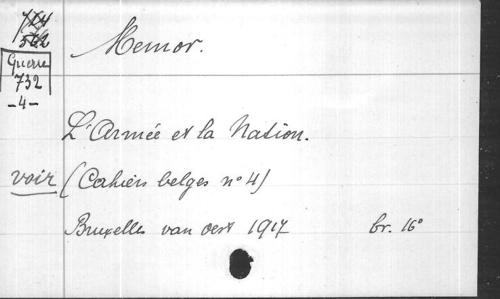 562
Guerre
732
-4-
Memor.
L'Armée et la Nation.
voir (Cahiers belges n° 4)
Bruxelles van Oest 1917 br. 16°